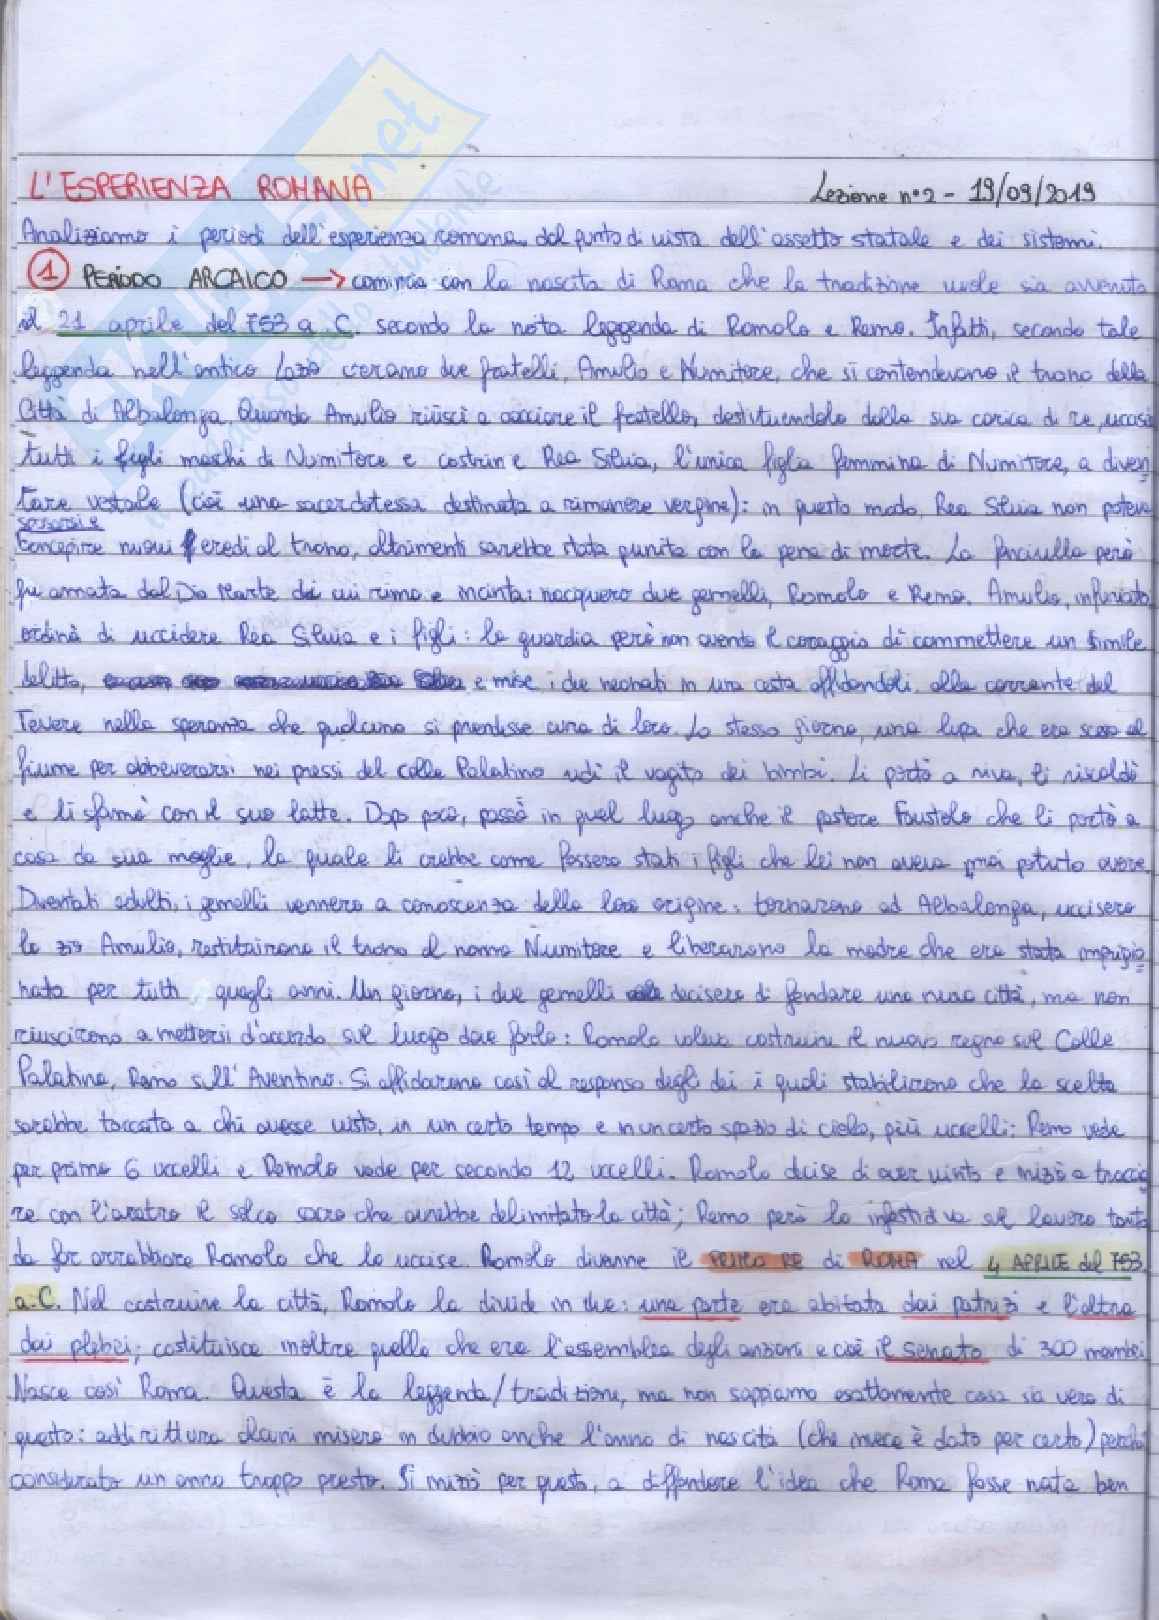 L'ESPERIENZA ROMANA Lezione n°2 - 19/09/2019
Analizziamo i periodi dell'esperienza romana dal punto di vista dell'assetto statale e dei sistemi.
1 PERIODO ARCAICO → comincia con la nascita di Roma che la tradizione vuole sia avvenuta
il 21 aprile del 753 a C. secondo la nota leggenda di Romolo e Remo. Infatti, secondo tale
leggenda nell'antico Lazio c'erano due fratelli, Amulio e Numitore, che si contendevano il trono della
Città di Albalonga. Quando Amulio riuscì a cacciare il fratello, destituendolo dalla sua carica di re, uccise
tutti i figli maschi di Numitore e costrinse Rea Silvia, l'unica figlia femmina di Numitore, a diven
tare vestale (cioè una sacerdotessa destinata a rimanere vergine): in questo modo, Rea Silvia non poteva
sposarsi e
concepire nuovi eredi al trono, altrimenti sarebbe stata punita con la pena di morte. La fanciulla però
fu amata dal Dio Marte da cui rimase incinta: nacquero due gemelli, Romolo e Remo. Amulio, infuriato,
ordinò di uccidere Rea Silvia e i figli: la guardia però non avendo il coraggio di commettere un simile
delitto, e mise i due neonati in una cesta affidandoli alla corrente del
Tevere nella speranza che qualcuno si prendesse cura di loro. Lo stesso giorno, una lupa che era scesa al
fiume per abbeverarsi nei pressi del colle Palatino udì il vagito dei bimbi. Li portò a riva, li riscaldò
e li sfamò con il suo latte. Dopo poco, passò in quel luogo anche il pastore Faustolo che li portò a
casa da sua moglie, la quale li crebbe come fossero stati i figli che lei non aveva mai potuto avere.
Diventati adulti, i gemelli vennero a conoscenza della loro origine: tornarono ad Albalonga, uccisero
lo zio Amulio, restituirono il trono al nonno Numitore e liberarono la madre che era stata imprigio
nata per tutti quegli anni. Un giorno, i due gemelli decisero di fondare una nuova città, ma non
riuscirono a mettersi d'accordo sul luogo dove farlo: Romolo voleva costruire il nuovo regno sul Colle
Palatino, Remo sull'Aventino. Si affidarono così al responso degli dei i quali stabilirono che la scelta
sarebbe toccata a chi avesse visto, in un certo tempo e in un certo spazio di cielo, più uccelli: Remo vede
per primo 6 uccelli e Romolo vede per secondo 12 uccelli. Romolo decise di aver vinto e iniziò a traccia
re con l'aratro il solco sacro che avrebbe delimitato la città; Remo però lo infastidiva al lavoro tanto
da far arrabbiare Romolo che lo uccise. Romolo divenne il PRIMO RE di ROMA nel 4 APRILE del 753
a.C. Nel costruire la città, Romolo la divide in due: una parte era abitata dai patrizi e l'altra
dai plebei; costituisce inoltre quella che era l'assemblea degli anziani e cioè il senato di 300 membri.
Nasce così Roma. Questa è la leggenda/tradizione, ma non sappiamo esattamente cosa sia vero di
questo: addirittura alcuni misero in dubbio anche l'anno di nascita (che invece è dato per certo) perché
considerato un anno troppo presto. Si iniziò per questo, a diffondere l'idea che Roma fosse nata ben